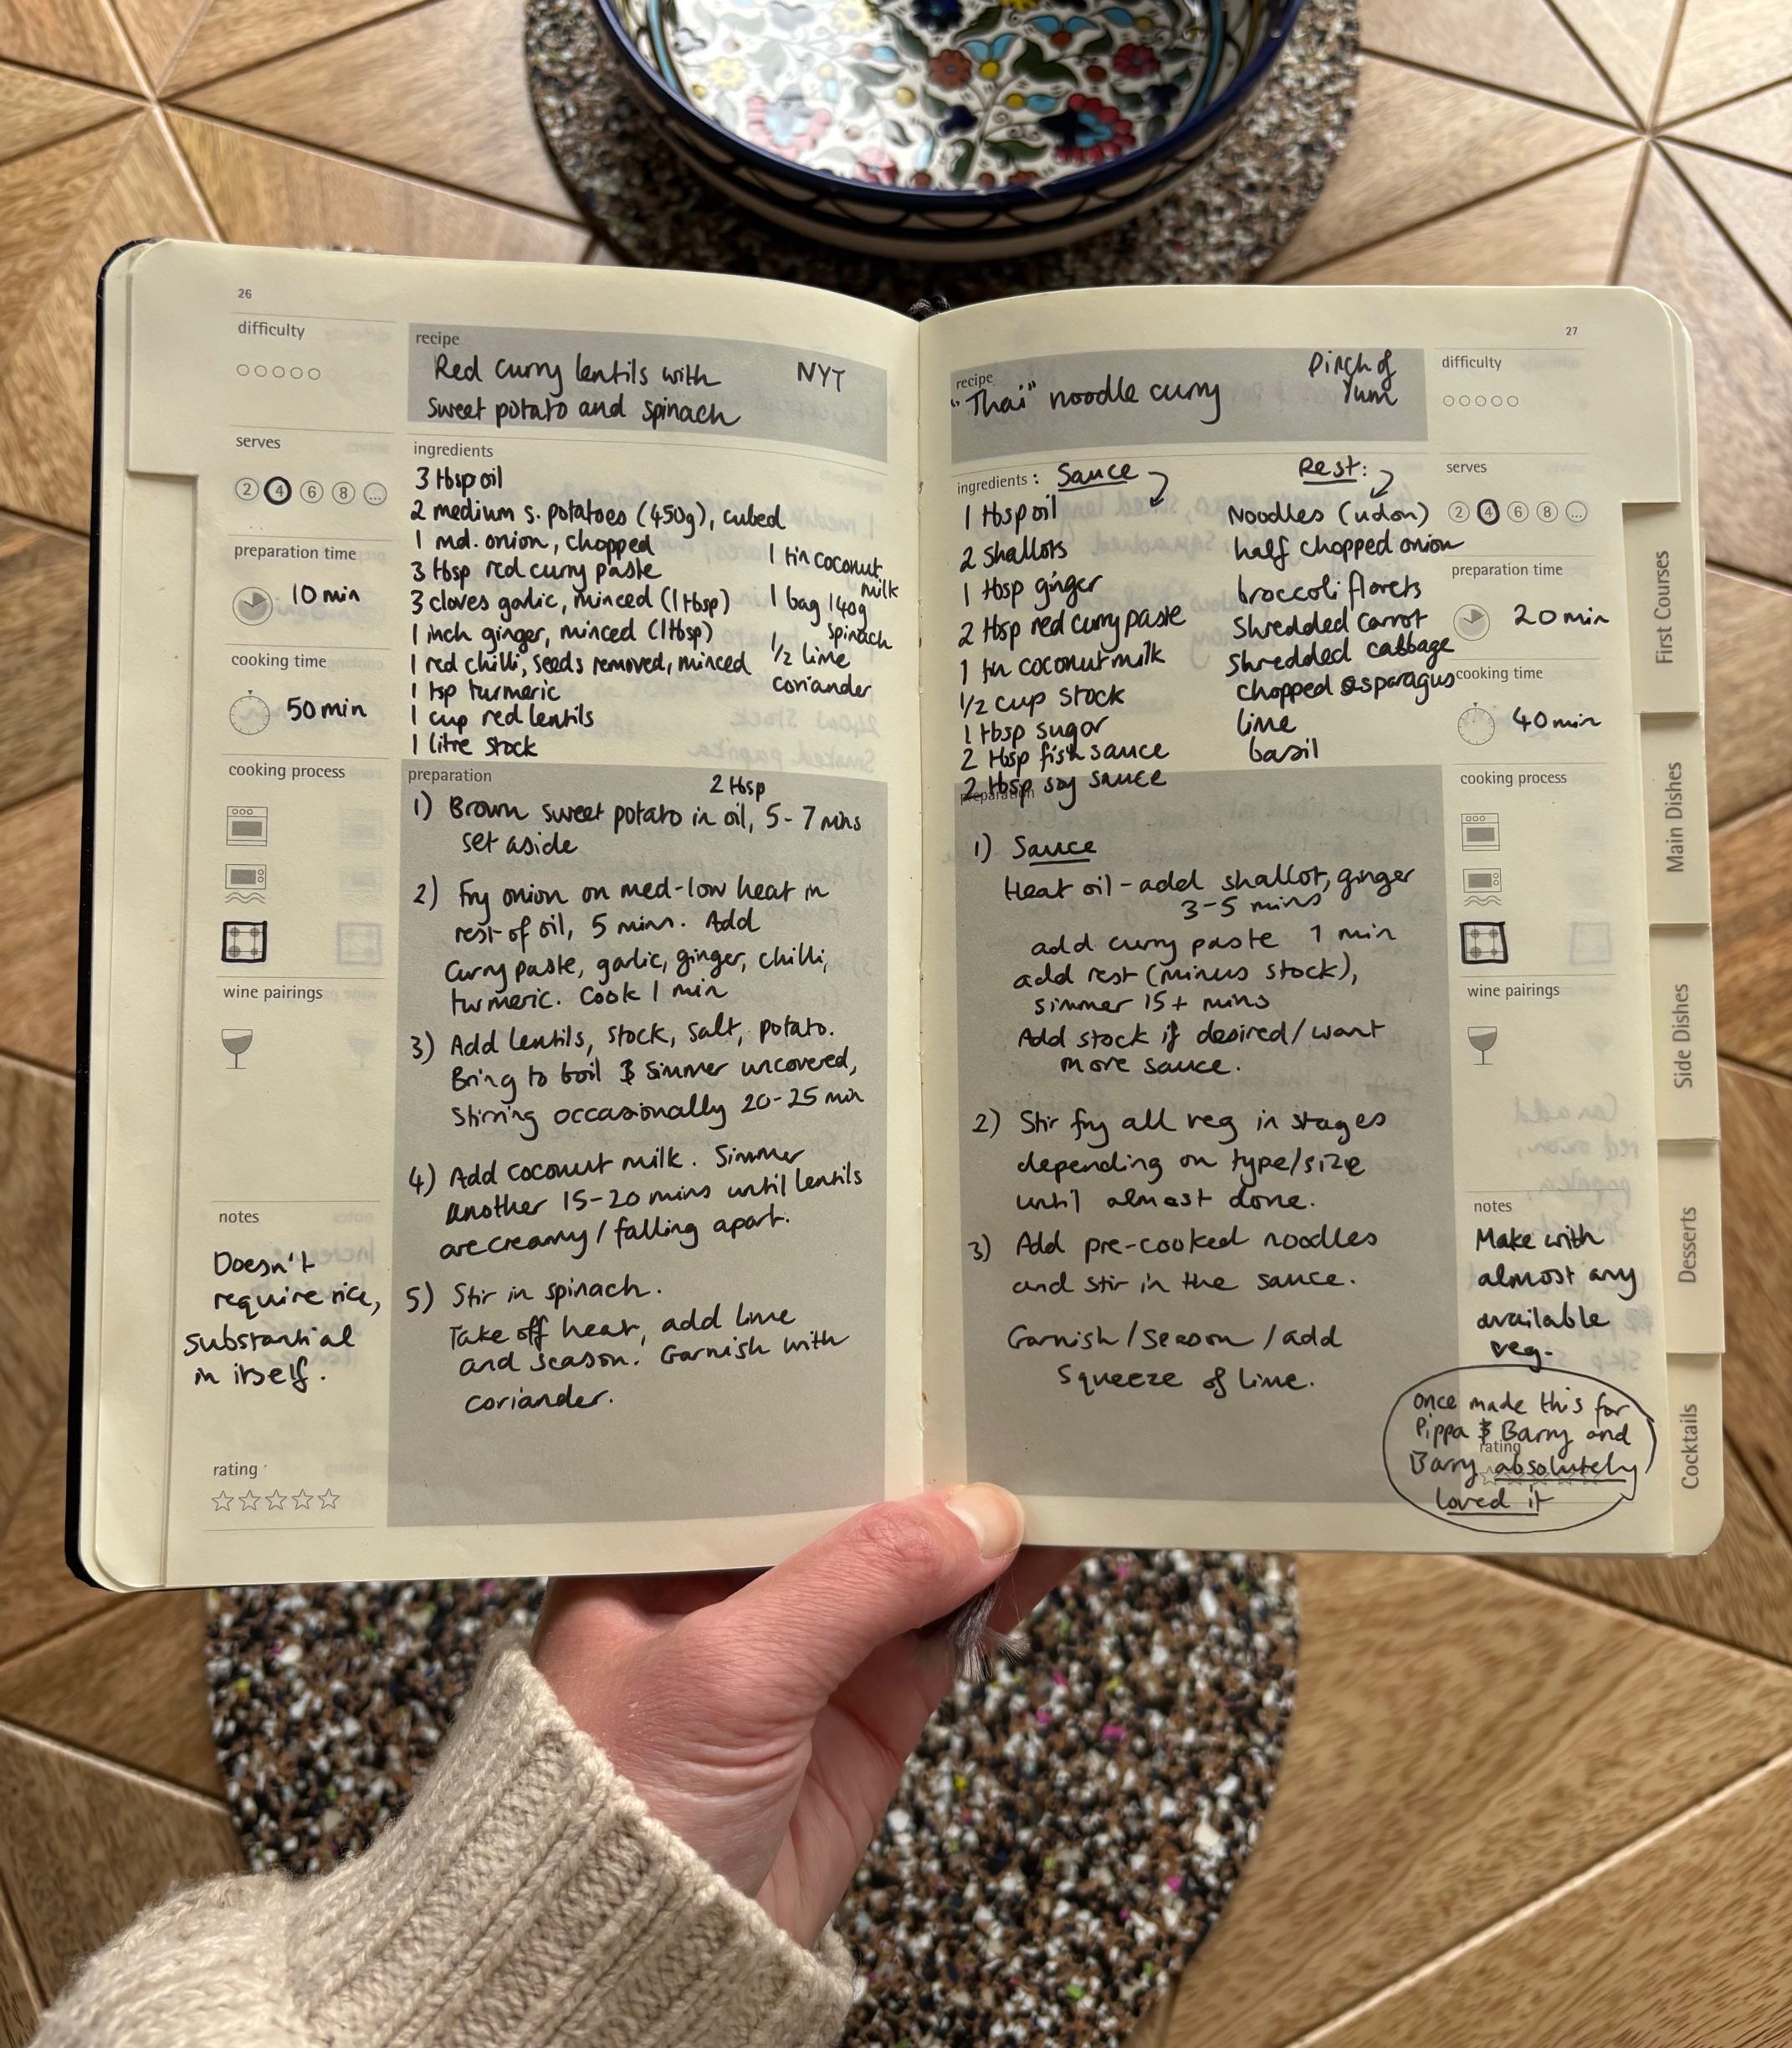 26
difficulty
recipe
Red curry lentils with NYT
sweet potato and spinach
serves
2 4 6 8 ...
preparation time
10 min
cooking time
50 min
cooking process
wine pairings
notes
Doesn't
require rice,
substantial
in itself.
rating
ingredients
3 tbsp oil
2 medium s. potatoes (450g), cubed
1 md. onion, chopped
3 tbsp red curry paste
3 cloves garlic, minced (1 tbsp)
1 inch ginger, minced (1 tbsp)
1 red chilli, seeds removed, minced
1 tsp turmeric
1 cup red lentils
1 litre stock
1 tin coconut
milk
1 bag 140g
spinach
1/2 lime
coriander
preparation
2 tbsp
1) Brown sweet potato in oil, 5-7 mins
set aside
2) Fry onion on med-low heat in
rest of oil, 5 mins. Add
curry paste, garlic, ginger, chilli,
turmeric. Cook 1 min
3) Add lentils, stock, salt, potato.
Bring to boil & simmer uncovered,
stirring occasionally 20-25 min
4) Add coconut milk. Simmer
another 15-20 mins until lentils
are creamy / falling apart.
5) Stir in spinach.
Take off heat, add lime
and season. Garnish with
coriander.
27
recipe
"Thai" noodle curry
Pinch of
Yum
difficulty
ingredients : Sauce
1 tbsp oil
2 shallots
1 tbsp ginger
2 tbsp red curry paste
1 tin coconut milk
1/2 cup stock
1 tbsp sugar
2 tbsp fish sauce
2 tbsp soy sauce
Rest:
Noodles (udon)
half chopped onion
broccoli florets
shredded carrot
shredded cabbage
chopped asparagus
lime
basil
serves
2 4 6 8 ...
preparation time
20 min
cooking time
40 min
cooking process
wine pairings
preparation
1) Sauce
Heat oil - add shallot, ginger
3-5 mins
add curry paste 1 min
add rest (minus stock),
simmer 15+ mins
Add stock if desired/want
more sauce.
2) Stir fry all veg in stages
depending on type/size
until almost done.
3) Add pre-cooked noodles
and stir in the sauce.
Garnish / season / add
squeeze of lime.
notes
Make with
almost any
available
veg.
once made this for
Pippa & Barry and
rating
Barry absolutely
loved it
First Courses
Main Dishes
Side Dishes
Desserts
Cocktails